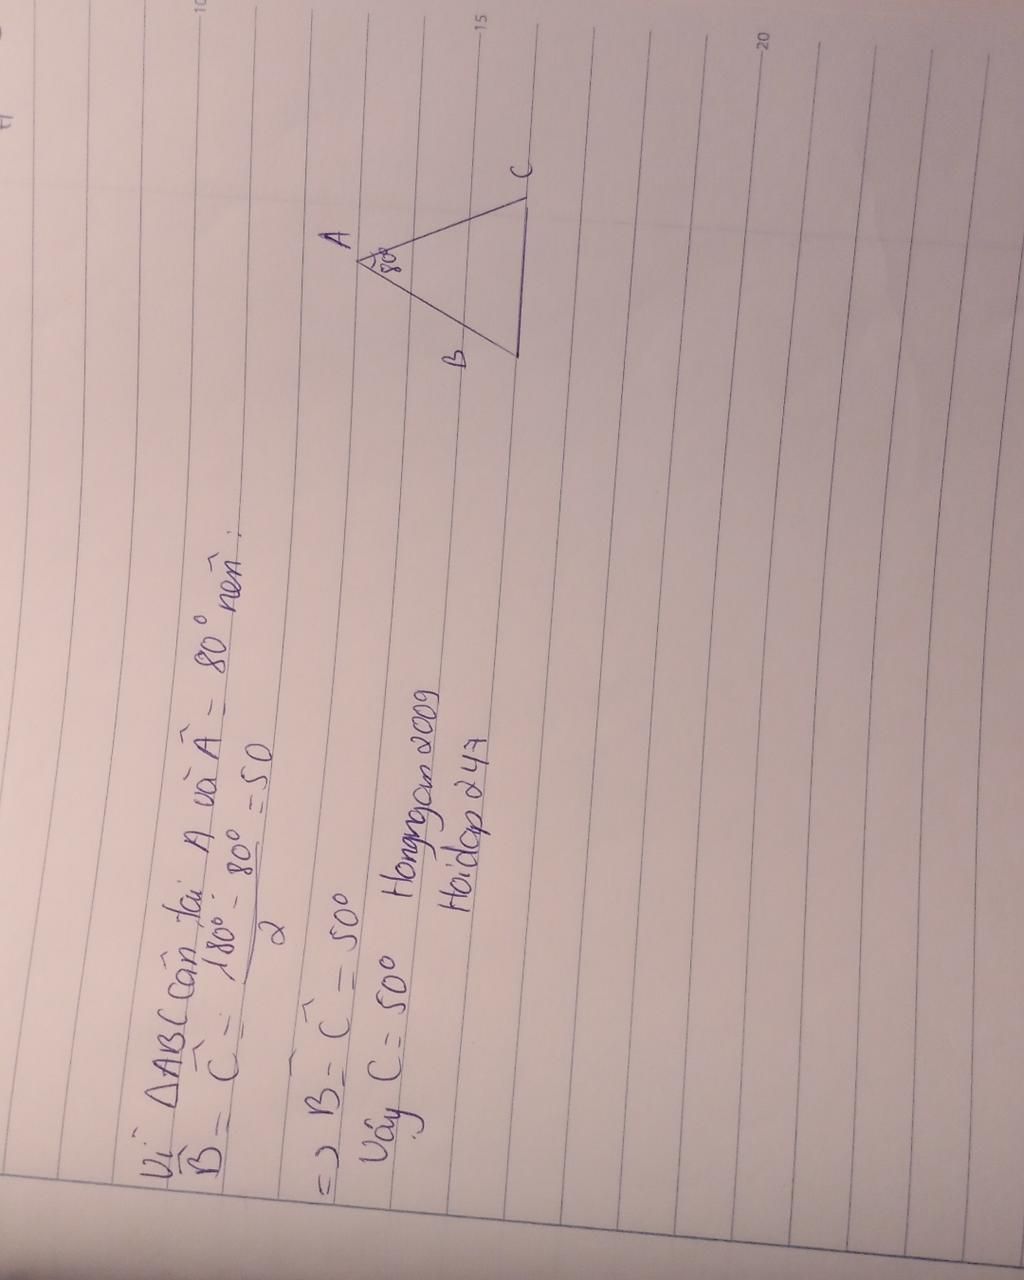 Vì ΔABC cân tại A và Â = 80° nên:
B̂ = Ĉ = (180° - 80°)/2 = 50
=> B̂ = Ĉ = 50°
Vậy C = 50°
Hongngan2009
Hoidap247
A
80°
B
C
10
15
20